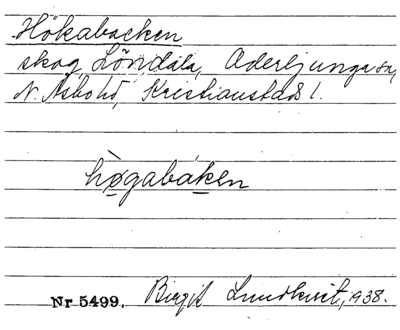 Hökabacken
skog Löndala, Oderljunga sn,
N. Åsbo hd, Kristianstads l.
hògabáken
Nr 5499. Birgit Lundkvist, 1938.